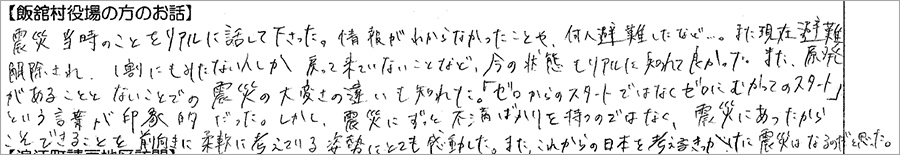 【飯舘村役場の方のお話】
震災当時のことをリアルに話して下さった。情報がわからなかったことや、何人避難したなど…。また現在避難
解除され、1割にもみたない人しか戻って来ていないことなど、今の状態もリアルに知れて良かった。また、原発
があることとないことでの震災の大変さの違いも知れた。「ゼロからのスタートではなくゼロにむかってのスタート」
という言葉が印象的だった。しかし、震災にずっと不満ばかりを持つのではなく、震災にあったから
こそできることを前向きに柔軟に考えている姿勢にとても感動した。また、これからの日本を考えるきっかけに震災はなるのだと思った。